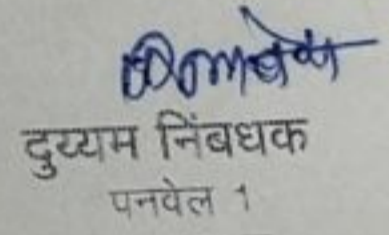 दुय्यम निंबधक
पनवेल 1